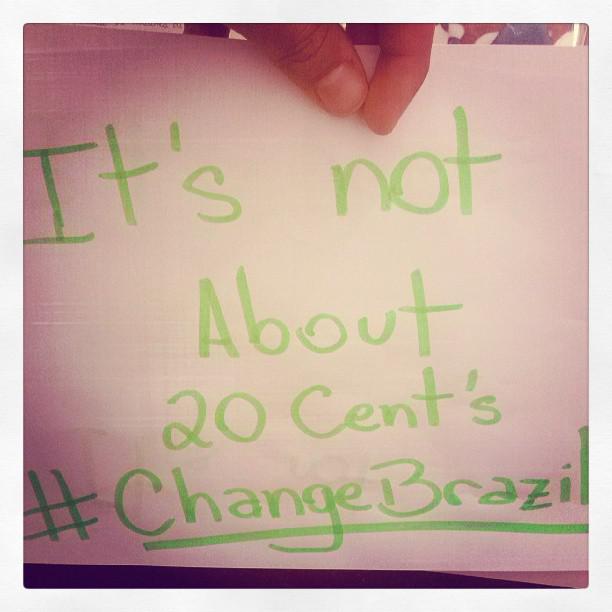 It's not
About
20 Cent's
#ChangeBrazil